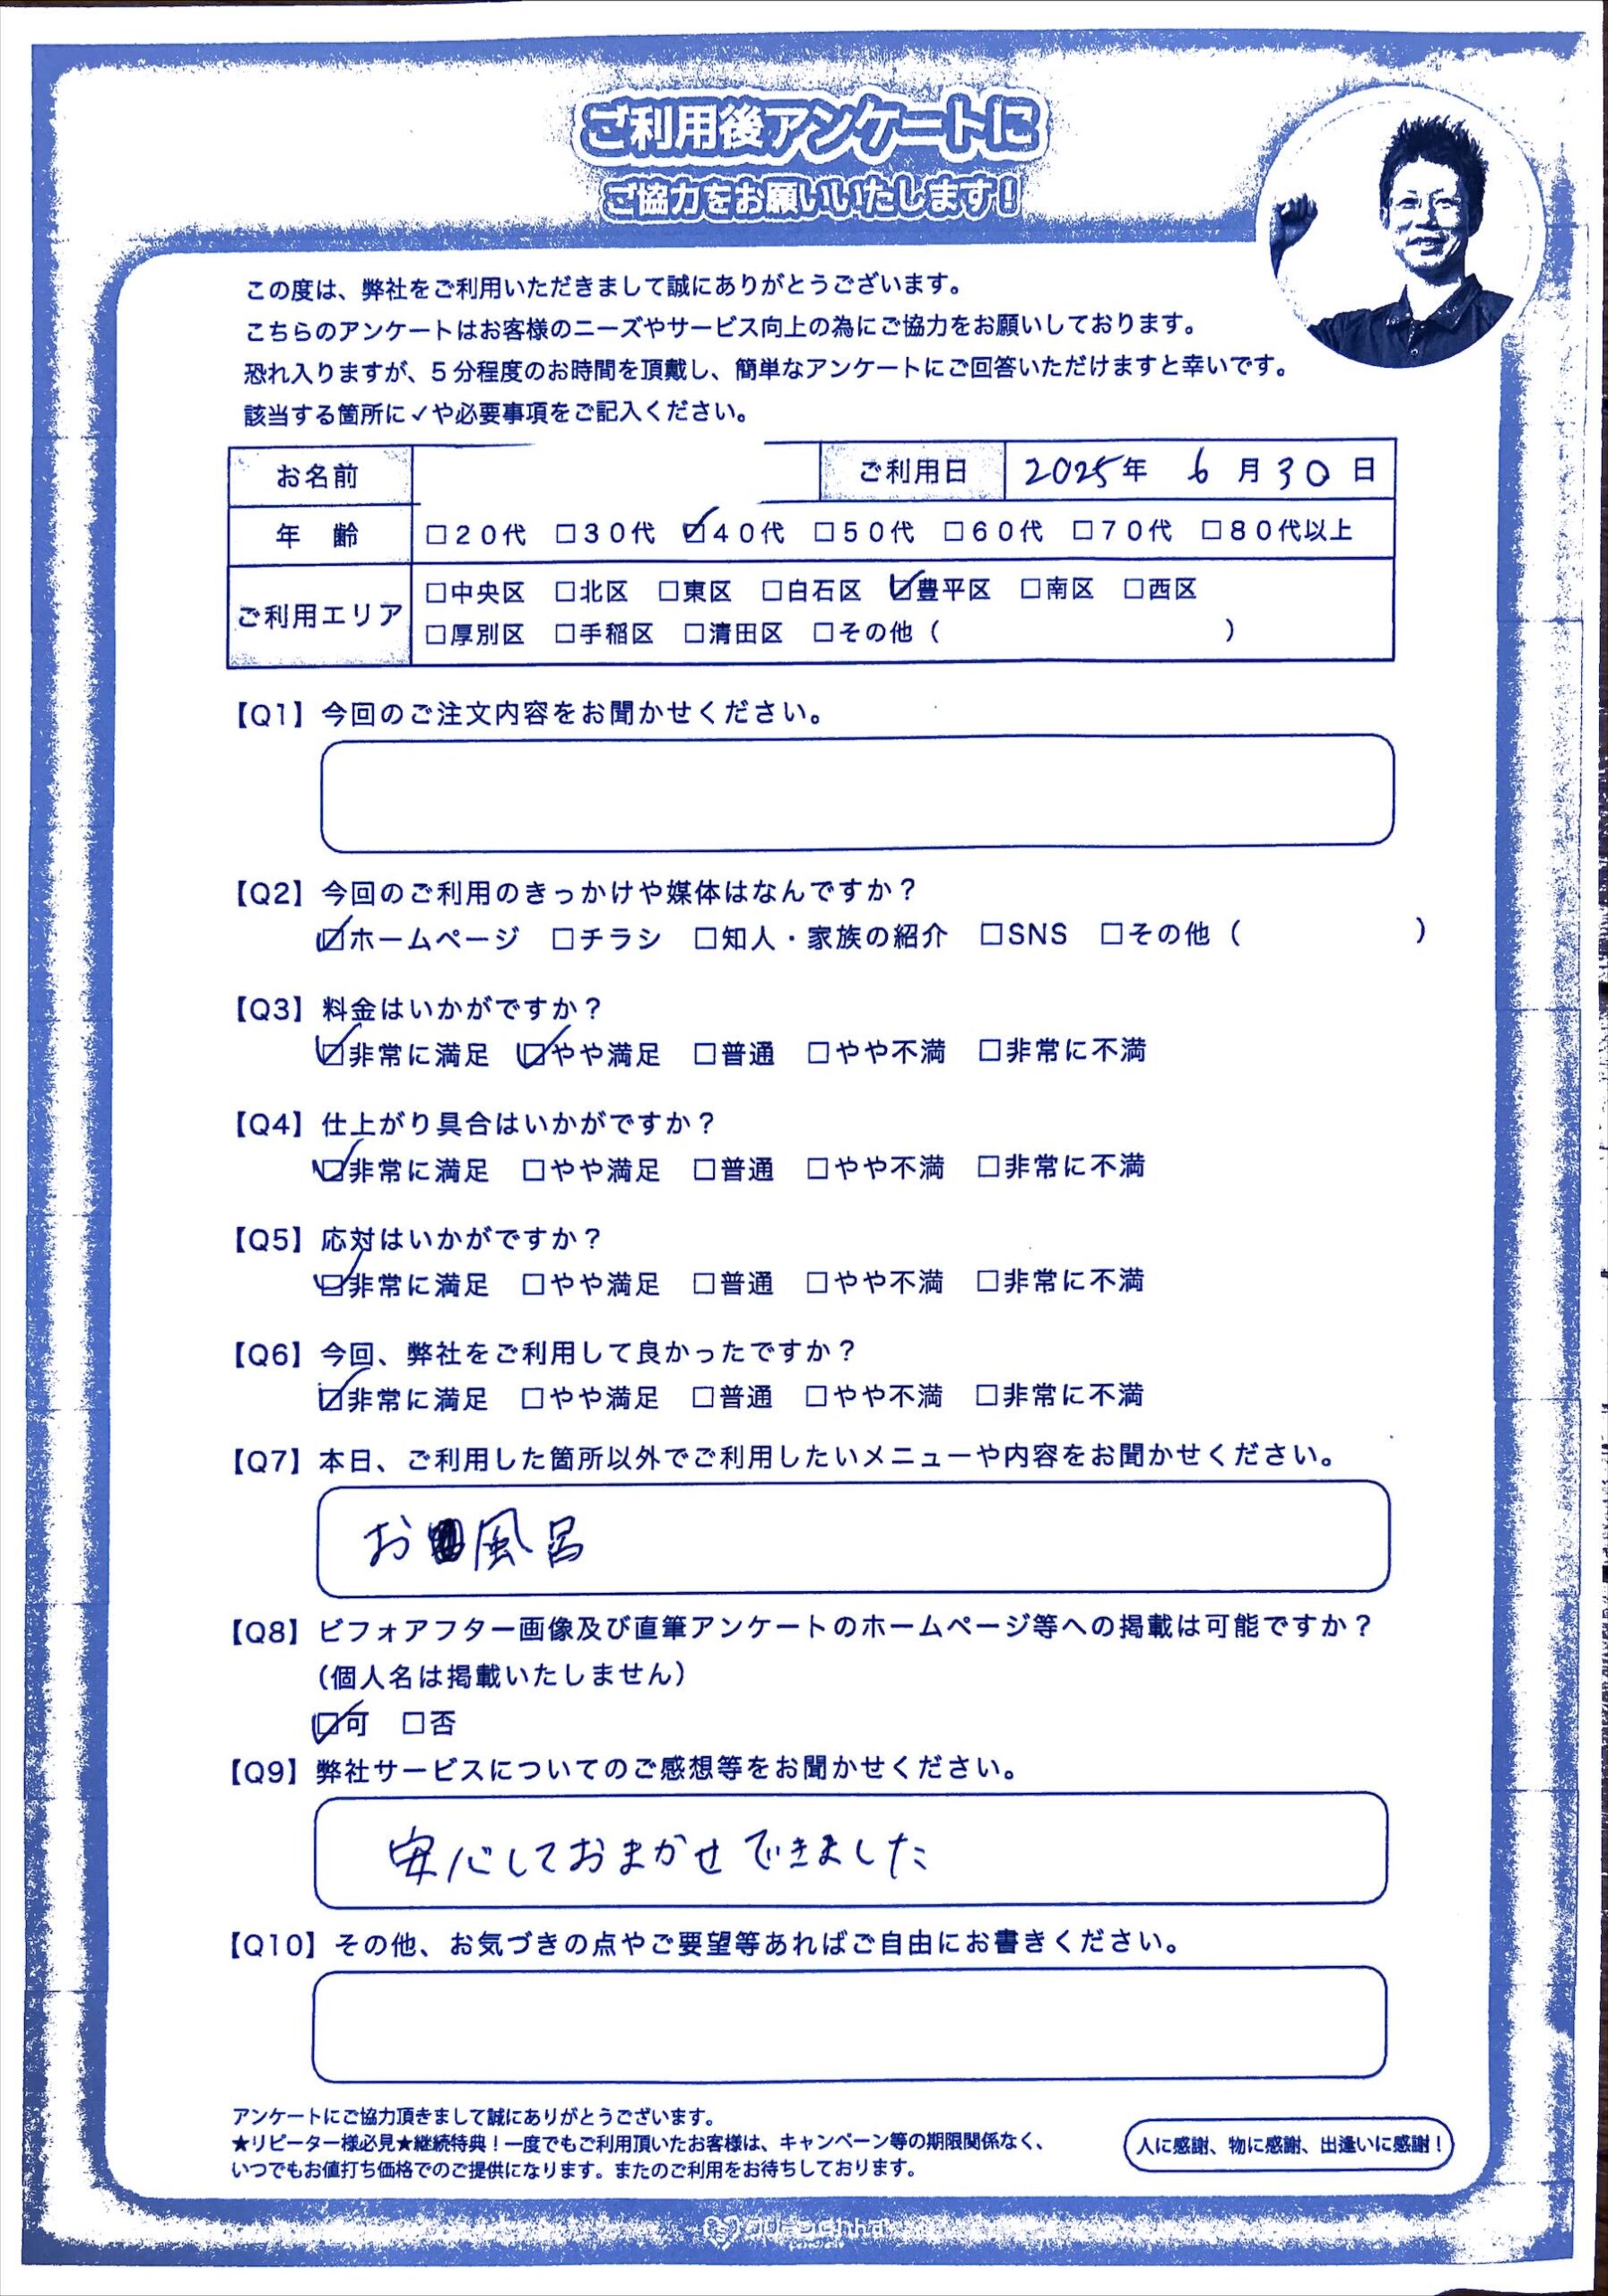 ご利用後アンケートに
ご協力をお願いいたします!
この度は、弊社をご利用いただきまして誠にありがとうございます。
こちらのアンケートはお客様のニーズやサービス向上の為にご協力をお願いしております。
恐れ入りますが、5分程度のお時間を頂戴し、簡単なアンケートにご回答いただけますと幸いです。
該当する箇所に✓や必要事項をご記入ください。
お名前 ご利用日 2025年 6月30日
年 齢 □20代 □30代 ☑40代 □50代 □60代 □70代 □80代以上
ご利用エリア □中央区 □北区 □東区 □白石区 ☑豊平区 □南区 □西区
□厚別区 □手稲区 □清田区 □その他( )
【Q1】今回のご注文内容をお聞かせください。
【Q2】今回のご利用のきっかけや媒体はなんですか?
☑ホームページ □チラシ □知人・家族の紹介 □SNS □その他( )
【Q3】料金はいかがですか?
☑非常に満足 ☑やや満足 □普通 □やや不満 □非常に不満
【Q4】仕上がり具合はいかがですか?
☑非常に満足 □やや満足 □普通 □やや不満 □非常に不満
【Q5】応対はいかがですか?
☑非常に満足 □やや満足 □普通 □やや不満 □非常に不満
【Q6】今回、弊社をご利用して良かったですか?
☑非常に満足 □やや満足 □普通 □やや不満 □非常に不満
【Q7】本日、ご利用した箇所以外でご利用したいメニューや内容をお聞かせください。
お風呂
【Q8】ビフォアフター画像及び直筆アンケートのホームページ等への掲載は可能ですか?
(個人名は掲載いたしません)
☑可 □否
【Q9】弊社サービスについてのご感想等をお聞かせください。
安心しておまかせできました
【Q10】その他、お気づきの点やご要望等あればご自由にお書きください。
アンケートにご協力頂きまして誠にありがとうございます。
★リピーター様必見★継続特典!一度でもご利用頂いたお客様は、キャンペーン等の期限関係なく、
いつでもお値打ち価格でのご提供になります。またのご利用をお待ちしております。
人に感謝、物に感謝、出逢いに感謝!